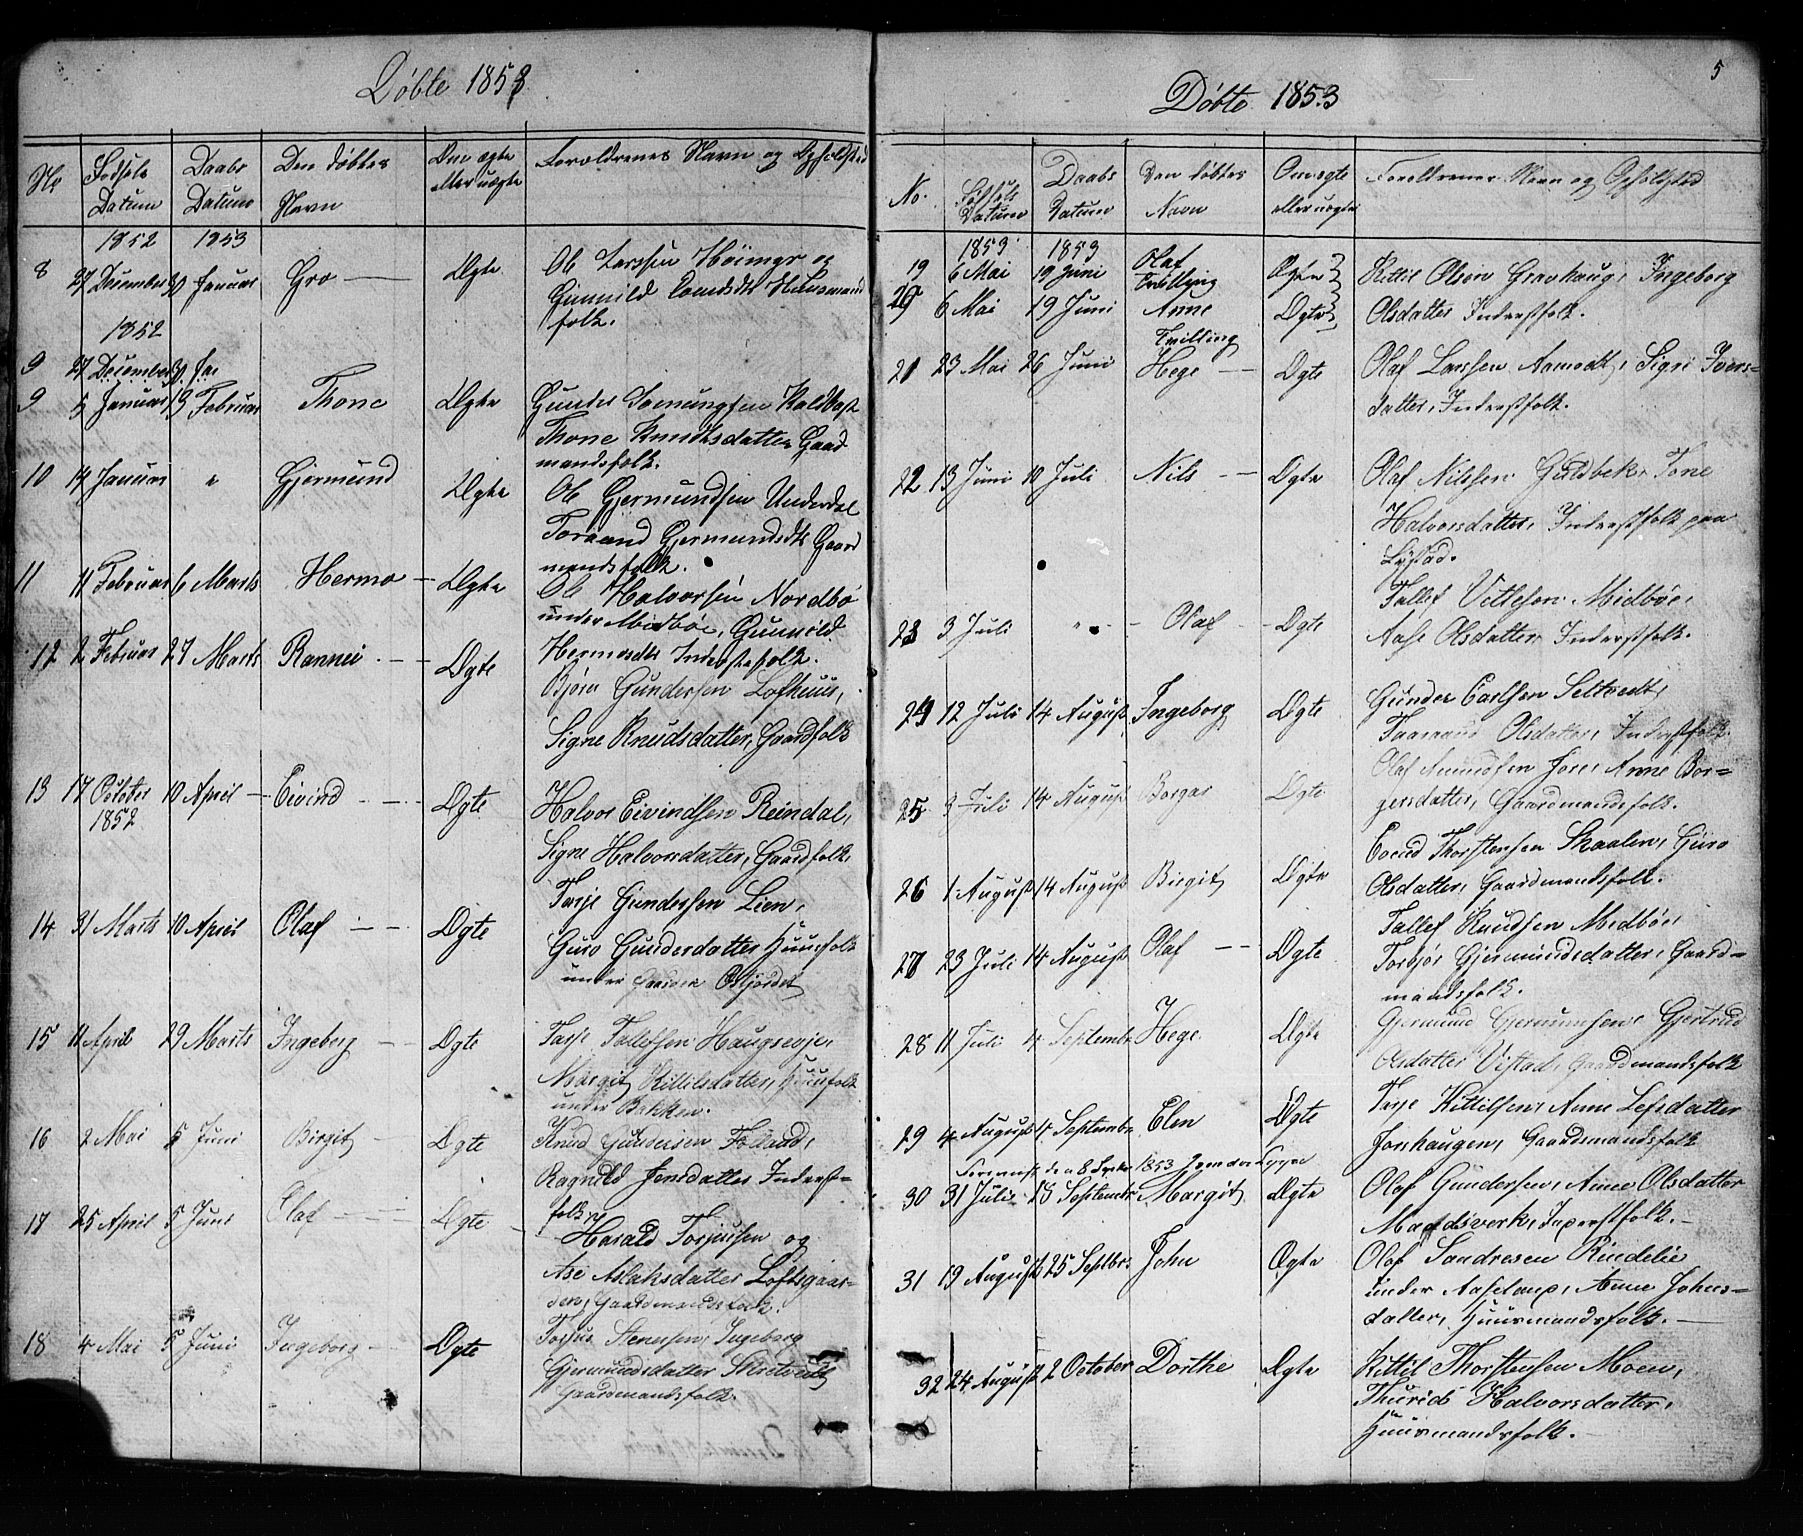 Døbte 1853
No Fødsels Datum Daabs Datum Den døbtes Navn Om ægte eller uægte Forældrenes Navn og Opholdsted
1852 1853
8 27 December 30 Januar Gro Ægte Ole Larssen Høimyr og
Gunnild Husmand
folk.
1852
9 27 December 30 Jan
9 5 Januar 13 Februar Thone Ægte Gunder
Thone Knudsdatter Gaard
mandsfolk.
10 14 Januar " Gjermund Ægte Ole Gjermundsen Underdal
Toraand Gjermundsdtr Gaard
mandsfolk.
11 11 Februar 6 Marts Hermo Ægte Ole Halvorsen Nordbø
under Midbøe, Gunnild
Hermosdtr Inderstefolk.
12 2 Februar 27 Marts Rannei Ægte Bjørn Gundersen Lofthuus,
Signe Knudsdatter, Gaardfolk
13 17 October 10 April Eivind Ægte Halvor Eivindsen Reindal,
1852
Signe Halvorsdatter, Gaardfolk
14 31 Marts 10 April Olaf Ægte Tarje Gundersen Lien,
Guro Gundersdatter Huusfolk
under Gaarden
15 11 April 29 Marts Ingeberg Ægte Tarje Tallefsen Haugseeje,
Margit Kittilsdatter, Huusfolk
under Bakken.
16 2 Mai 5 Juni Birgit Ægte Knud Gundersen Folland,
Ragnild Jensdatter Inderst-
folk
17 25 April 5 Juni Olaf Ægte Harald Torjussen og
Ase Aslaksdatter Loftsgaar-
den, Gaardmandsfolk.
18 4 Mai 5 Juni Ingeborg Ægte Torjus Stenersen, Ingeborg
Gjermundsdatter
Gaardmandsfolk.
5
Døbte 1853
No. Fødsels Datum Daabs Datum Den døbtes Navn Om ægte eller uægte Forældrenes Navn og Opholdsted
1853 1853
19 6 Mai 19 Juni Olaf Tvilling Ægte Kittil Olsen Gravhaug, Ingeborg
20 6 Mai 19 Juni Anne Tvilling Ægte Olsdatter Inderstfolk.
21 23 Mai 26 Juni Hege Ægte Olaf Larssen Aamodt, Sigri Ivers-
datter, Inderstfolk.
22 13 Juni 10 Juli Nils Ægte Olaf Nilssen Guldbek, Tone
Halvorsdatter, Inderstfolk paa
Lystad.
23 3 Juli " Olaf Ægte Tallef Vetlesen Midbøe,
Aase Olsdatter, Inderstfolk.
24 12 Juli 14 August Ingeborg Ægte Gunder Carlsen Seltvedt,
Taaraand Olsdatter, Inderstfolk.
25 3 Juli 14 August Borgar Ægte Olaf Amundsen Jore, Anne Bor-
gersdatter, Gaardmandsfolk.
26 1 August 14 August Birgit Ægte Eivind Thorstensen Skaalen, Guro
Olsdatter, Gaardmandsfolk.
27 23 Juli 14 August Olaf Ægte Tallef Knudsen Midbøe,
Torbjør Gjermundsdatter, Gaard-
mandsfolk.
28 11 Juli 4 September Hege Ægte Gjermund Gjermundsen, Gjertrud
Olsdatter Vistad, Gaardmandsfolk
29 4 August 4 September Elen Ægte Tarje Kittilsen, Anne Leifsdatter
Jonshaugen, Gaardmandsfolk
30 31 Juli 18 September Margit Ægte Olaf Gundersen, Anne Olsdatter
Inderstfolk.
31 19 August 25 Septbr. John Ægte Olaf Sandresen Rindelie
under Aaselamp, Anne Johns-
datter, Huusmandsfolk.
32 24 August 2 October Dorthe Ægte Kittil Thorstensen Moen,
Thurid Halvorsdatter,
Huusmandsfolk.